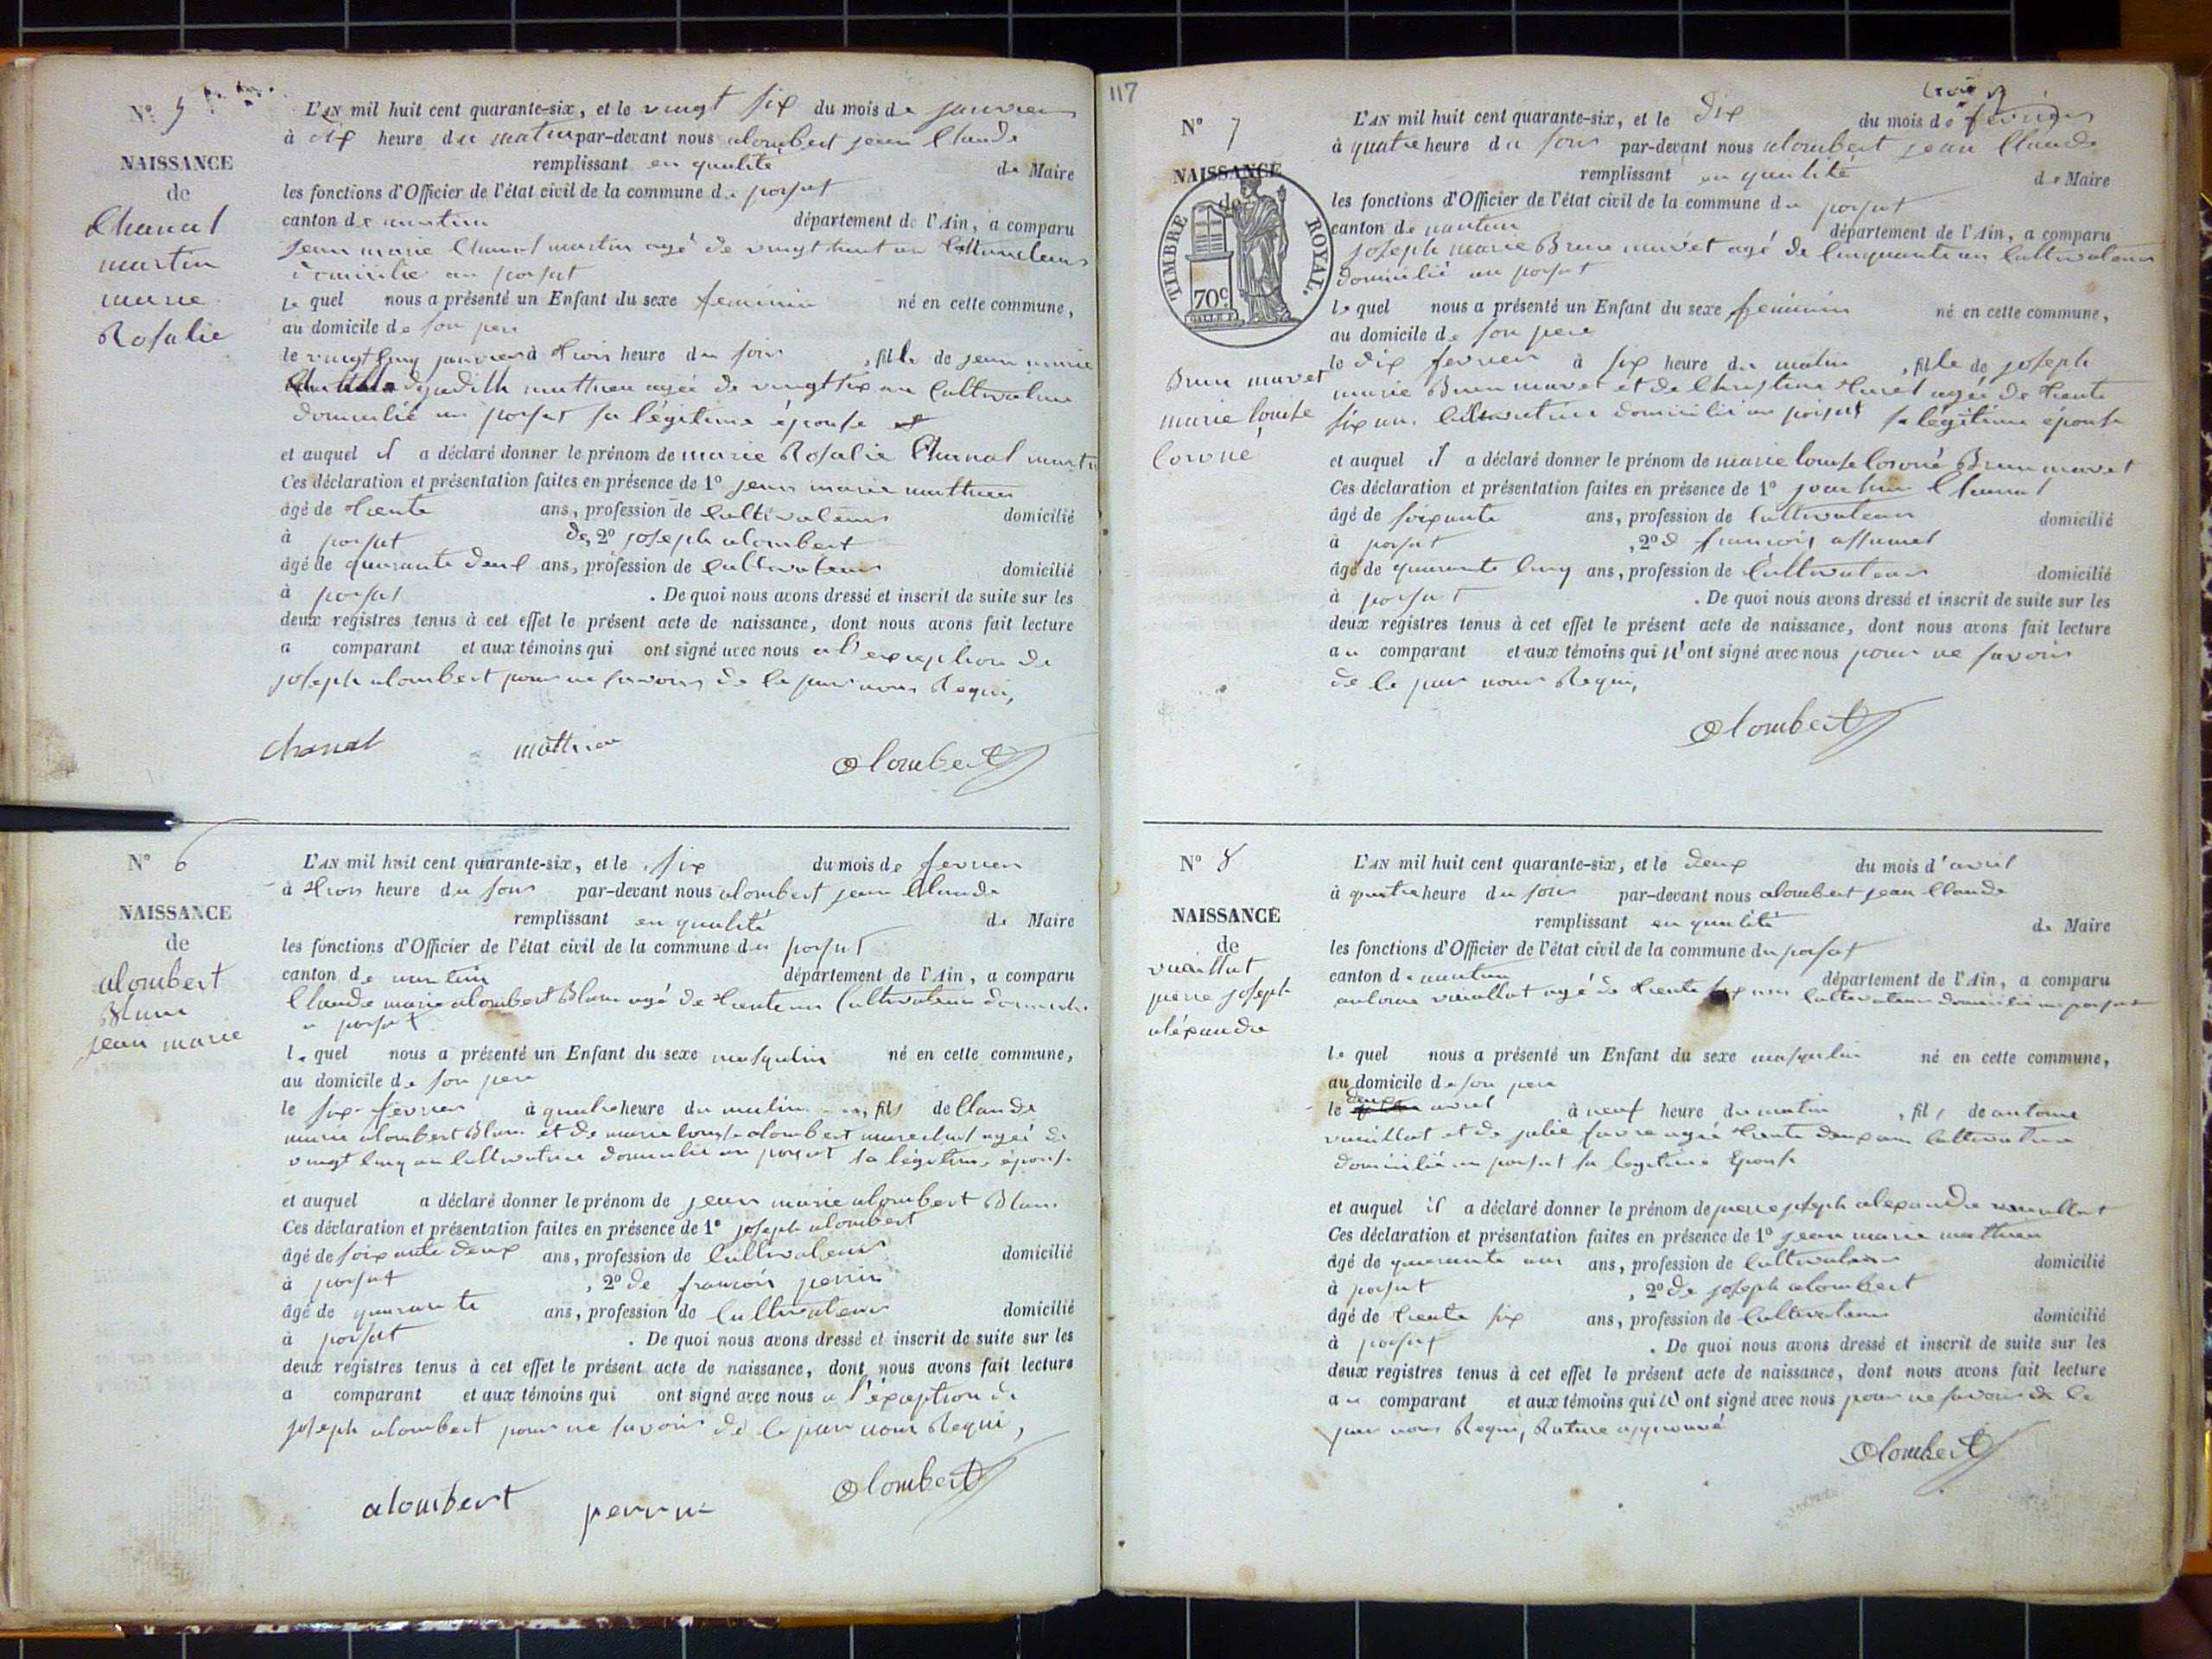 N° 5
NAISSANCE
de
Chanal
martin
marie
Rosalie
L'AN mil huit cent quarante-six, et le vingt six du mois de janvier
à dix heure du matin par-devant nous alombert jean Claude
remplissant en qualité de Maire
les fonctions d'Officier de l'état civil de la commune du
canton de nantua département de l'Ain, a comparu
jean marie Chanal martin agé de vingt huit an Cultivateur
domicilié au
le quel nous a présenté un Enfant du sexe feminin né en cette commune,
au domicile de son pere
le vingt cinq janvier à trois heure du soir, fille de jean marie
de judith mathieu agée de vingt six an Cultivatrice
domicilié au sa légitime épouse
et auquel il a déclaré donner le prénom de marie Rosalie Chanal martin
Ces déclaration et présentation faites en présence de 1° jean marie mathieu
âgé de trente ans, profession de Cultivateur domicilié
à de, 2° joseph alombert
âgé de quarante deux ans, profession de Cultivateur domicilié
à . De quoi nous avons dressé et inscrit de suite sur les
deux registres tenus à cet effet le présent acte de naissance, dont nous avons fait lecture
a comparant et aux témoins qui ont signé avec nous a l'exception de
joseph alombert pour ne savoir de ce par nous Requi,
chanal mathieu alombert
N° 6
NAISSANCE
de
alombert
Blanc
jean marie
L'AN mil huit cent quarante-six, et le six du mois de fevrier
à trois heure du soir par-devant nous alombert jean Claude
remplissant en qualité de Maire
les fonctions d'Officier de l'état civil de la commune du
canton de nantua département de l'Ain, a comparu
Claude marie alombert Blanc agé de trente an Cultivateur domicilié
a
le quel nous a présenté un Enfant du sexe masqulin né en cette commune,
au domicile de son pere
le six fevrier à quatre heure du matin, fils de Claude
marie alombert Blanc et de marie louise alombert agée de
vingt cinq an Cultivatrice domicilié au sa légitime épouse
et auquel a déclaré donner le prénom de jean marie alombert Blanc
Ces déclaration et présentation faites en présence de 1° joseph alombert
âgé de soixante deux ans, profession de Cultivateur domicilié
à , 2° de francois perrin
âgé de quarante ans, profession de Cultivateur domicilié
à . De quoi nous avons dressé et inscrit de suite sur les
deux registres tenus à cet effet le présent acte de naissance, dont nous avons fait lecture
a comparant et aux témoins qui ont signé avec nous a l'éxception de
joseph alombert pour ne savoir de ce par nous Requi,
alombert perrin alombert
117
N° 7
NAISSANCE
de
TIMBRE ROYAL.
70c.
Brun mavet
marie louise
L'AN mil huit cent quarante-six, et le Dix du mois de fevrier
à quatre heure du soir par-devant nous alombert jean Claude
remplissant en qualité de Maire
les fonctions d'Officier de l'état civil de la commune du
canton de nantua département de l'Ain, a comparu
joseph marie Brun mavet agé de Cinquante an Cultivateur
domicilié au
le quel nous a présenté un Enfant du sexe feminin né en cette commune,
au domicile de son pere
le dix fevrier à six heure du matin, fille de joseph
marie Brun mavet et de Christine agée de trente
six an Cultivatrice domicilié au sa légitime épouse
et auquel il a déclaré donner le prénom de marie louise Brun mavet
Ces déclaration et présentation faites en présence de 1° joachim Chanal
âgé de soixante ans, profession de Cultivateur domicilié
à , 2° de francois assumel
âgé de quarante cinq ans, profession de Cultivateur domicilié
à . De quoi nous avons dressé et inscrit de suite sur les
deux registres tenus à cet effet le présent acte de naissance, dont nous avons fait lecture
au comparant et aux témoins qui n'ont signé avec nous pour ne savoir
de ce par nous Requi,
alombert
N° 8
NAISSANCE
de
vuaillat
pierre joseph
aléxandre
L'AN mil huit cent quarante-six, et le deux du mois d'avril
à quatre heure du soir par-devant nous alombert jean Claude
remplissant en qualité de Maire
les fonctions d'Officier de l'état civil de la commune du
canton de nantua département de l'Ain, a comparu
antoine vuaillat agé de trente six ans Cultivateur domicilié au
le quel nous a présenté un Enfant du sexe masqulin né en cette commune,
au domicile de son pere
le deux avril à neuf heure du matin, fils de antoine
vuaillat et de julie favre agée trente deux an Cultivatrice
domicilié au sa legitime Epouse
et auquel il a déclaré donner le prénom de pierre joseph alexandre vuaillat
Ces déclaration et présentation faites en présence de 1° jean marie mathieu
âgé de quarante ans, profession de Cultivateur domicilié
à , 2° de joseph alombert
âgé de trente six ans, profession de Cultivateur domicilié
à . De quoi nous avons dressé et inscrit de suite sur les
deux registres tenus à cet effet le présent acte de naissance, dont nous avons fait lecture
au comparant et aux témoins qui n'ont signé avec nous pour ne savoir de ce
par nous Requi, Rature approuvé
alombert